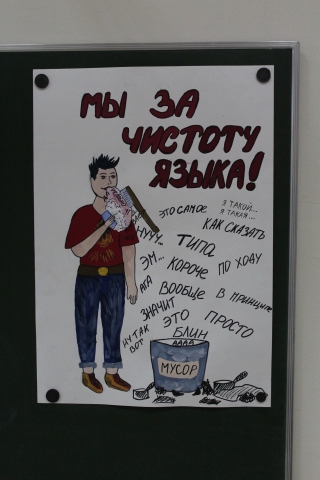 МЫ ЗА
ЧИСТОТУ
ЯЗЫКА!
ЭТО САМОЕ
Я ТАКОЙ...
Я ТАКАЯ...
КАК СКАЗАТЬ
НУУУ...
ТИПА
ЭМ...
КОРОЧЕ
ПО ХОДУ
АГА
ВООБЩЕ
В ПРИНЦИПЕ
ЗНАЧИТ
ЭТО
ПРОСТО
НУ ТАК
ВОТ
БЛИН
АААА
МУСОР